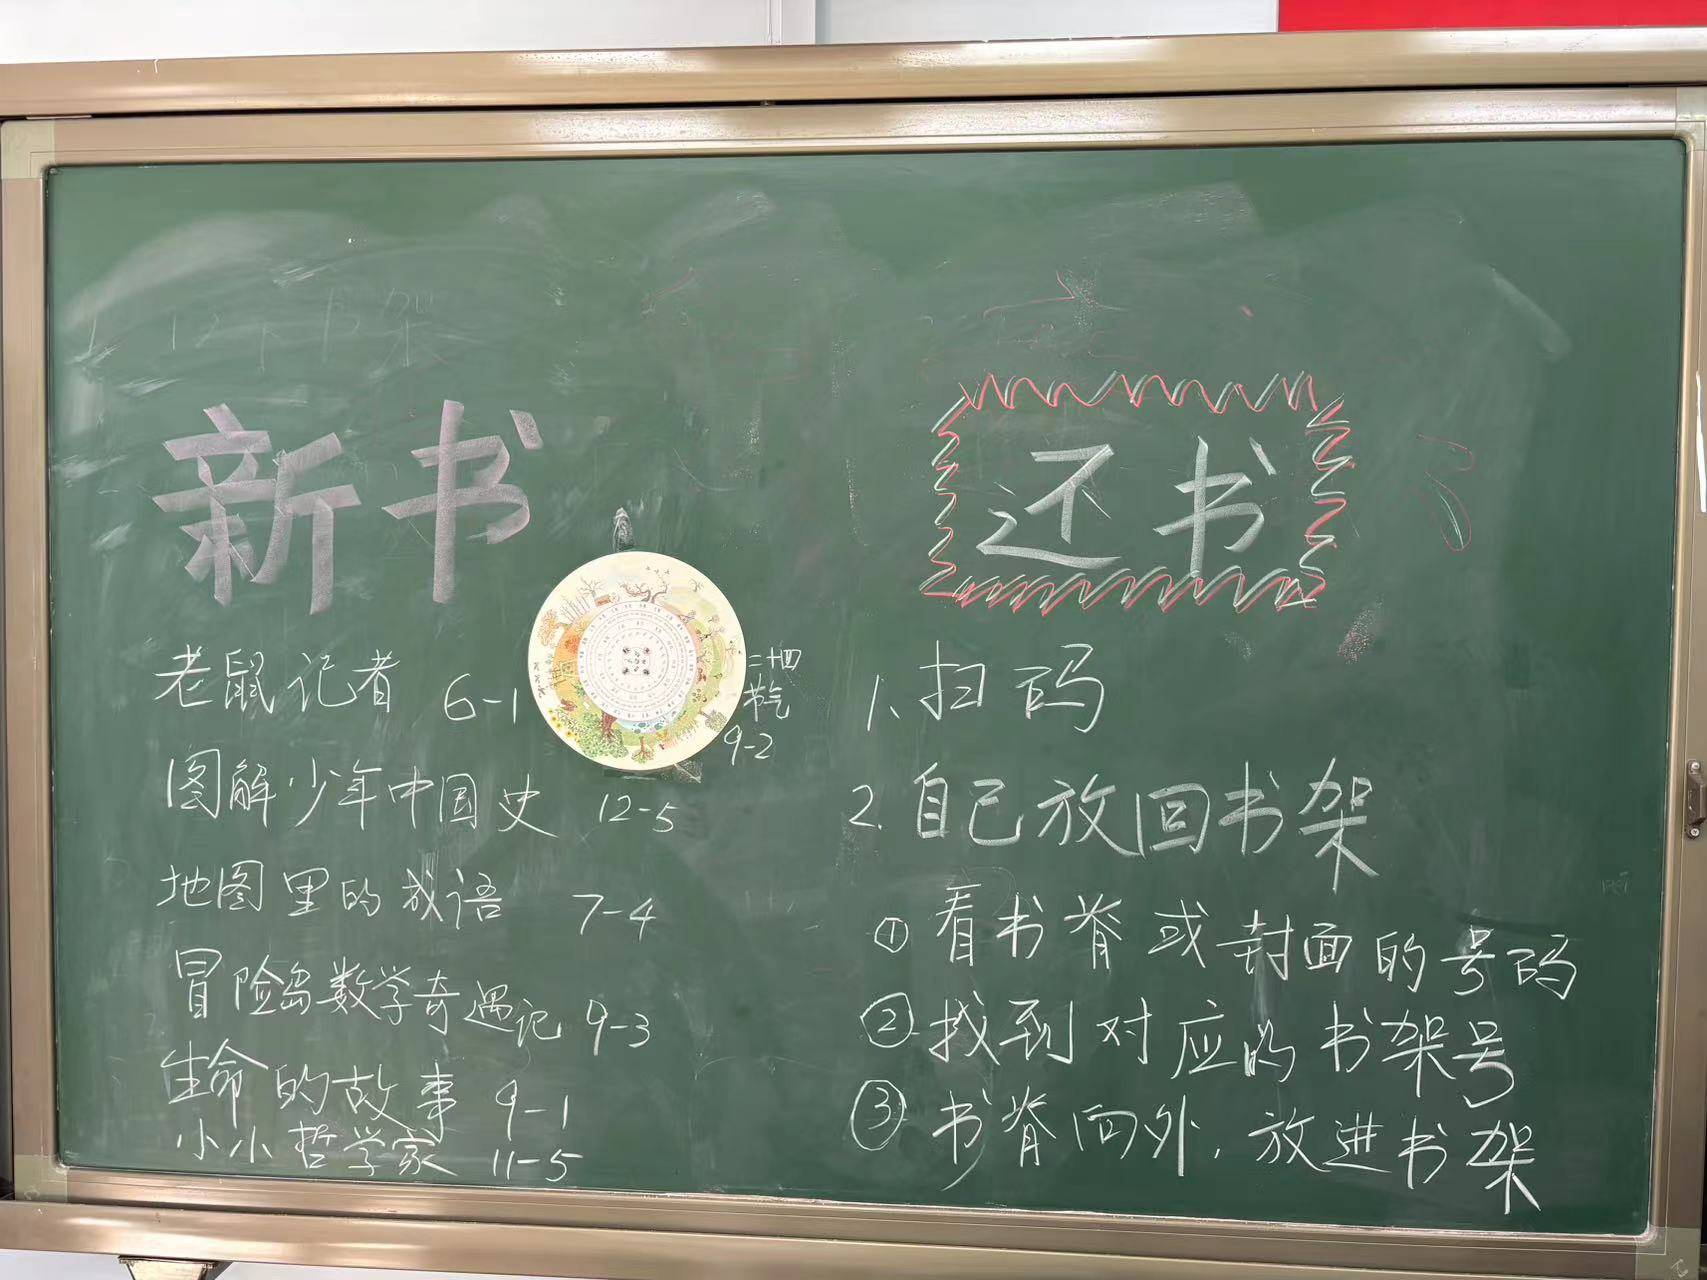 新书
老鼠记者 6-1
二十四
节气
9-2
图解少年中国史 12-5
地图里的成语 7-4
冒险岛数学奇遇记 9-3
生命的故事 9-1
小小哲学家 11-5
还书
1、扫码
2.自己放回书架
①看书脊或封面的号码
②找到对应的书架号
③书脊面外,放进书架